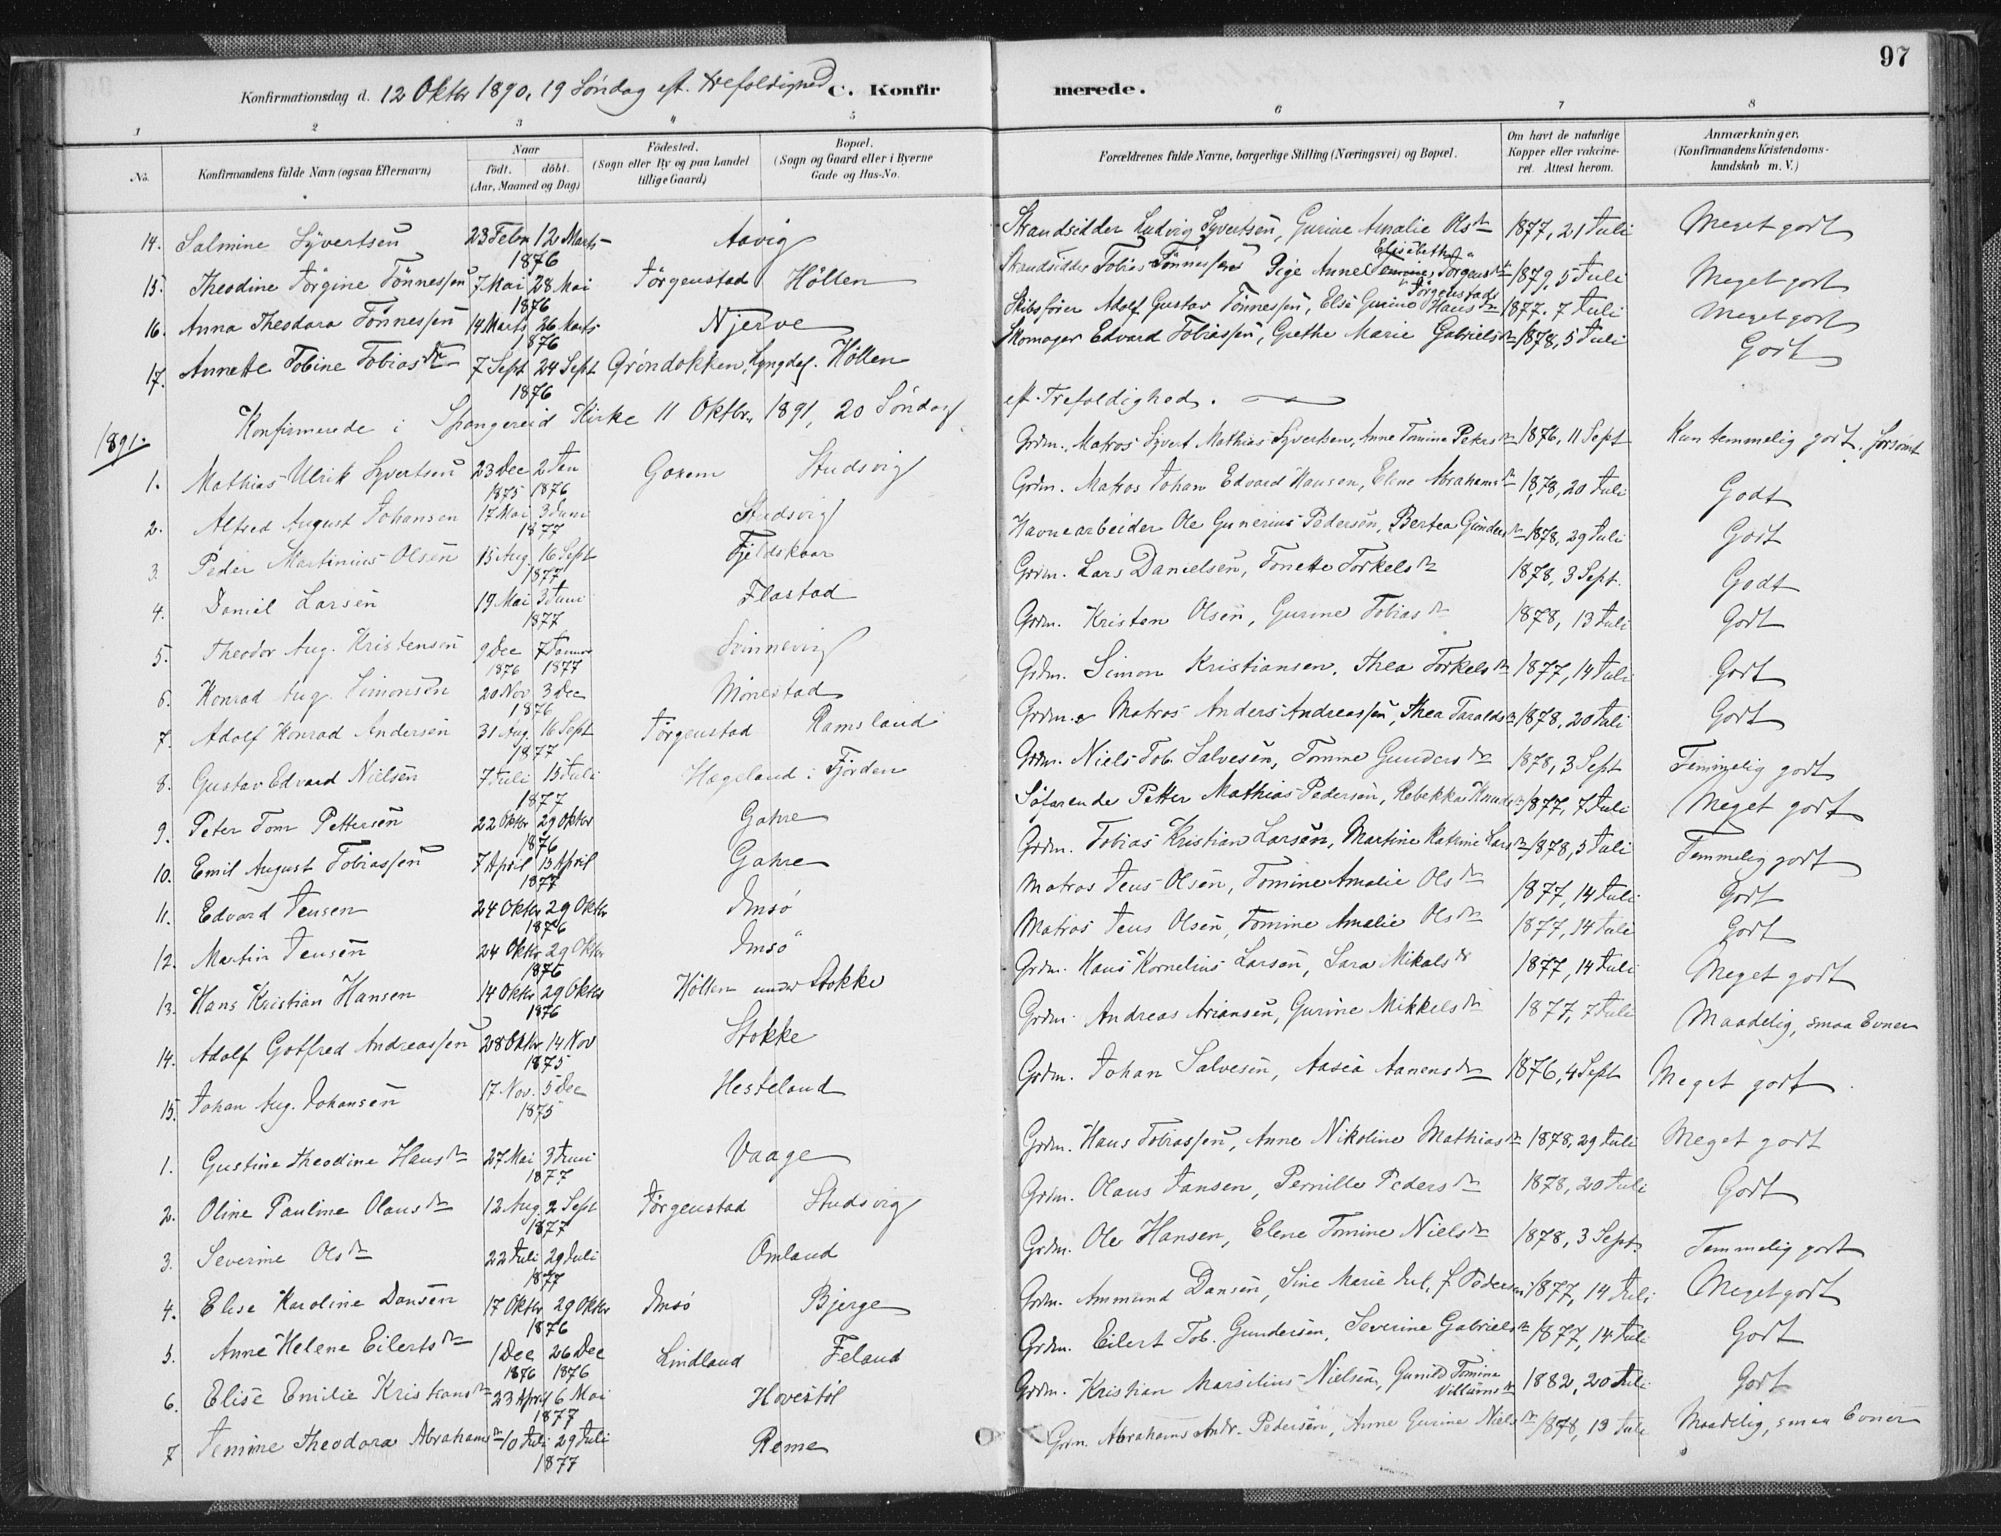 97
Konfirmationsdag d. 12 Oktbr 1890, 19 Søndag eft. Trefoldighed C. Konfirmerede.
1 2 3 4 5 6 7 8
No. Konfirmandens fulde Navn (ogsaa Efternavn) Naar født. døbt. (Aar, Maaned og Dag) Fødested. (Sogn eller By og paa Landet tillige Gaard) Bopæl. (Sogn og Gaard eller i Byerne Gade og Hus-No. Forældrenes fulde Navne, borgerlige Stilling (Næringsvei) og Bopæl. Om havt de naturlige Kopper eller vakcineret. Attest herom. Anmærkninger. (Konfirmandens Kristendomskundskab m. V.)
14. Salmine Syvertsen 23 Febr 12 Marts 1876 Aavig Strandsidder Ludvig Syvertsen, Gurine Amalie Olsdtr 1877, 21 Juli Meget godt
15. Theodine Jørgine Tønnessen 7 Mai 28 Mai 1876 Jørgenstad Høllen Strandsidder Tobias Tønnessen Pige Anne Elisabeth Jørgensdtr Jørgenstad 1879, 5 Juli Meget godt
16. Anna Theodora Tønnessen 14 Marts 26 Marts 1876 Njerve Skibsfører Adolf Gustav Tønnessen, Else Gurine Hansdtr 1877, 7 Juli Meget godt
17. Annette Tobine Tobiasdtr 7 Sept 24 Sept 1876 Grøndokken, Lyngdal. Høllen Skomager Edvard Tobiassen, Grethe Marie Gabrielsdtr 1878, 5 Juli Godt
1891. Konfirmerede i Spangereid Kirke 11 Oktbr. 1891, 20 Søndag eft. Trefoldighed.
1. Mathias Ulrik Syvertsen 23 Dec 1875 2 Jan 1876 Gaxem Studsvig Grdm. Matros Syvert Mathias Syvertsen, Anne Tomine Petersdtr 1876, 11 Sept Kun temmelig godt, forsømt
2. Alfred August Johansen 17 Mai 3 Juni 1877 Studsvig Grdm. Matros Johan Edvard Hansen, Elene Abrahamsdtr 1878, 20 Juli Godt
3. Peder Martinius Olsen 15 Aug. 16 Sept 1877 Fjeldskaar Havnearbeider Ole Gunerius Pedersen, Bertea Gundersdtr 1878, 29 Juli Godt
4. Daniel Larsen 19 Mai 3 Juni 1877 Flastad Grdm. Lars Danielsen, Tonette Torkelsdtr 1878, 3 Sept. Godt
5. Theodor Aug. Kristensen 9 Dec 1876 7 Januar 1877 Svinnevig Grdm. Kristen Olsen, Gurine Tobiasdtr 1878, 13 Juli Godt
6. Konrad Aug. Simonsen 20 Nov 3 Dec 1876 Mønestad Grdm. Simon Kristiansen, Thea Torkelsdtr 1877, 14 Juli Godt
7. Adolf Konrad Andersen 31 Aug. 16 Sept 1877 Jørgenstad Ramsland Grdm. & Matros Anders Andreassen, Thea Taraldsdtr 1878, 20 Juli Godt
8. Gustav Edvard Nielsen 7 Juli 15 Juli 1877 Hægeland i Fjorden Grdm. Niels Tob. Salvesen, Tomine Gundersdtr 1878, 3 Sept Temmelig godt
9. Peter Tom Pettersen 22 Oktbr 29 Oktbr 1876 Gahre Søfarende Petter Mathias Pedersen, Rebekka Knudsdtr 1877, 7 Juli Meget godt
10. Emil August Tobiassen 7 April 15 April 1877 Gahre Grdm. Tobias Kristian Larsen, Martine Katrine Larsdtr 1878, 5 Juli Temmelig godt
11. Edvard Jensen 24 Oktbr 29 Oktbr 1876 Imsø Matros Jens Olsen, Tomine Amalie Olsdtr 1877, 14 Juli Godt
12. Martin Jensen 24 Oktbr 29 Oktbr 1876 Imsø Matros Jens Olsen, Tomine Amalie Olsdtr 1877, 14 Juli Godt
13. Hans Kristian Hansen 14 Oktbr 29 Oktbr 1876 Høllen under Stokke Grdm. Hans Kornelius Larsen, Sara Mikalsdtr 1877, 14 Juli Meget godt
14. Adolf Gotfred Andreassen 28 Oktbr 14 Nov 1875 Stokke Grdm. Andreas Ariansen, Gurine Mikkelsdtr 1877, 7 Juli Maadelig, smaa Evner
15. Johan Aug. Johansen 17 Nov. 5 Dec 1875 Hesteland Grdm. Johan Salvesen, Aasea Aanensdtr 1876, 4 Sept Meget godt
1. Gustine Theodine Hansdtr 27 Mai 3 Juni 1877 Vaage Grdm. Hans Tobiassen, Anne Nikoline Mathiasdtr 1878, 29 Juli Meget godt
2. Oline Pauline Olausdtr 12 Aug. 2 Sept 1877 Jørgenstad Studsvig Grdm. Olaus Jansen, Pernille Pedersdtr 1878, 20 Juli Godt
3. Severine Olsdtr 22 Juli 29 Juli 1877 Omland Grdm. Ole Hansen, Elene Tomine Nielsdtr 1878, 3 Sept. Temmelig godt
4. Elise Karoline Dansen 17 Oktbr 29 Oktbr 1876 Imsø Bjerge Grdm. Ammund Dansen, Sine Marie Jul. f. Pedersen 1877, 14 Juli Meget godt
5. Anne Helene Eilertsdtr 1 Dec 1876 26 Dec 1876 Lindland Feland Grdm. Eilert Tob. Gundersen, Severine Gabrielsdtr 1877, 14 Juli Godt
6. Elise Emilie Kristiansdtr 23 April 6 Mai 1877 Hovestøl Grdm. Kristian Marsilius Nielsen, Gunild Tomine Villumsdtr 1882, 20 Juli Godt
7 Jemine Theodora Abrahamsdtr 10 Juli 29 Juli 1877 Reme Grdm. Abrahams Andr. Pedersen, Anne Gurine Nielsdtr 1878, 13 Juli Maadelig, smaa Evner